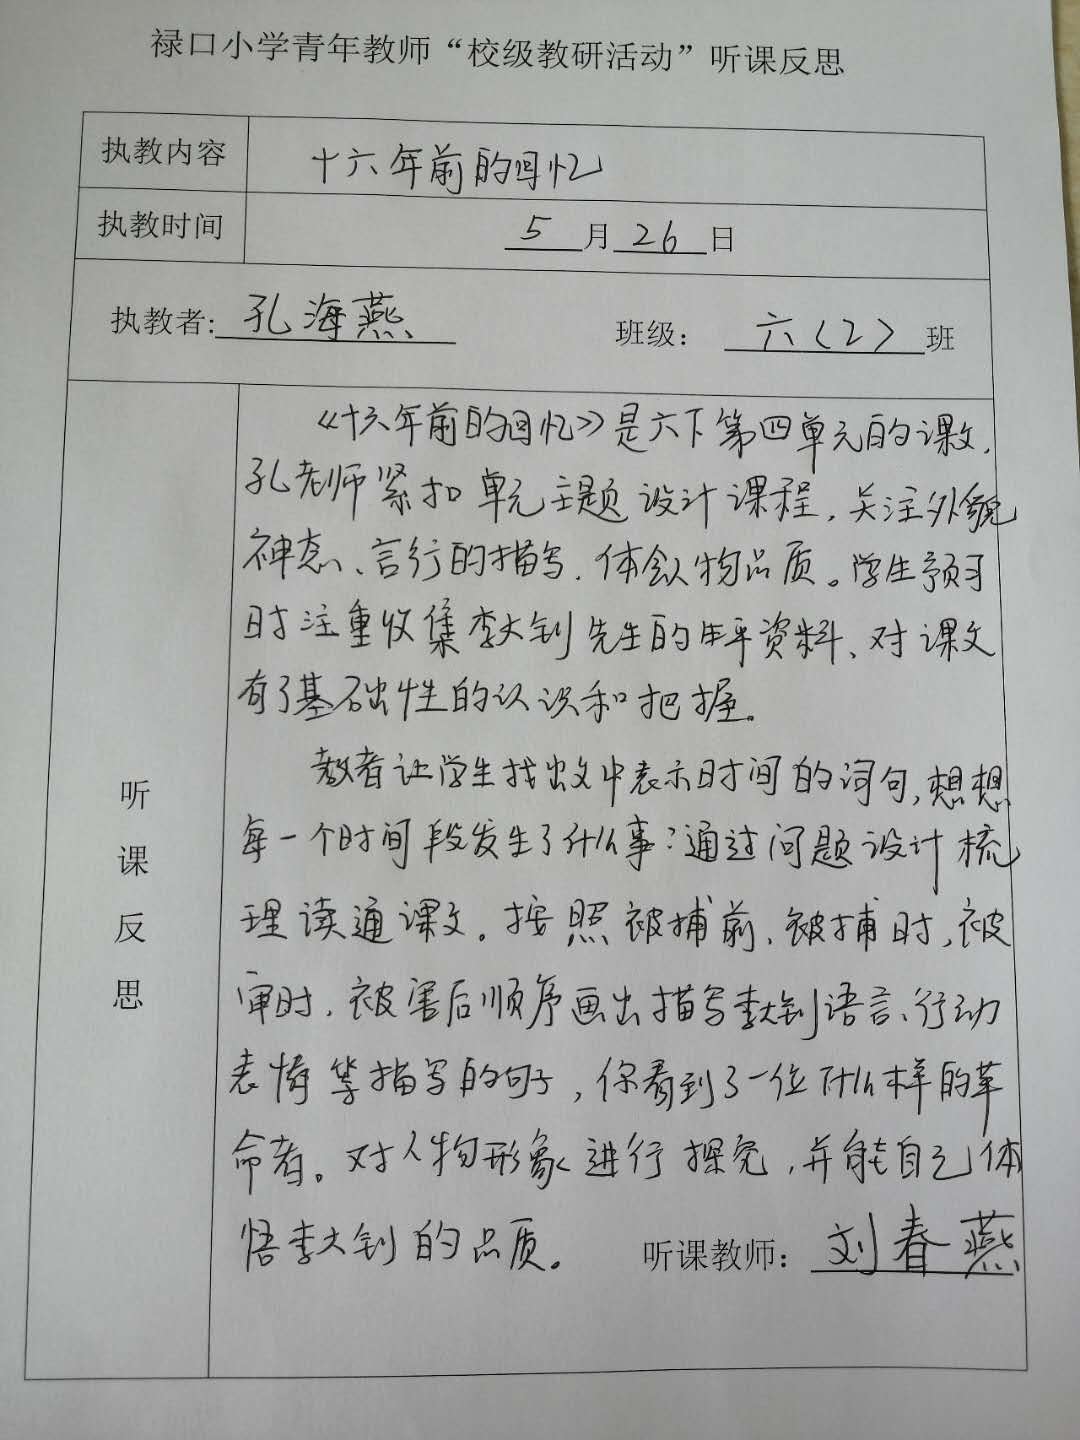 禄口小学青年教师“校级教研活动”听课反思
执教内容 十六年前的回忆
执教时间 5月26日
执教者:孔海燕 班级：六（2）班
《十六年前的回忆》是六下第四单元的课文，
孔老师紧扣单元主题设计课程，关注外貌
神态、言行的描写，体会人物品质。学生预习
时注重收集李大钊先生的生平资料、对课文
有了基础性的认识和把握。
教者让学生找出文中表示时间的词句，想想
每一个时间段发生了什么事？通过问题设计梳
理读通课文。按照被捕前、被捕时，被
审时，被害后顺序画出描写李大钊语言、行动
表情等描写的句子，你看到了一位什么样的革
命者。对人物形象进行探究，并能自己体
悟李大钊的品质。
听课反思
听课教师：刘春燕